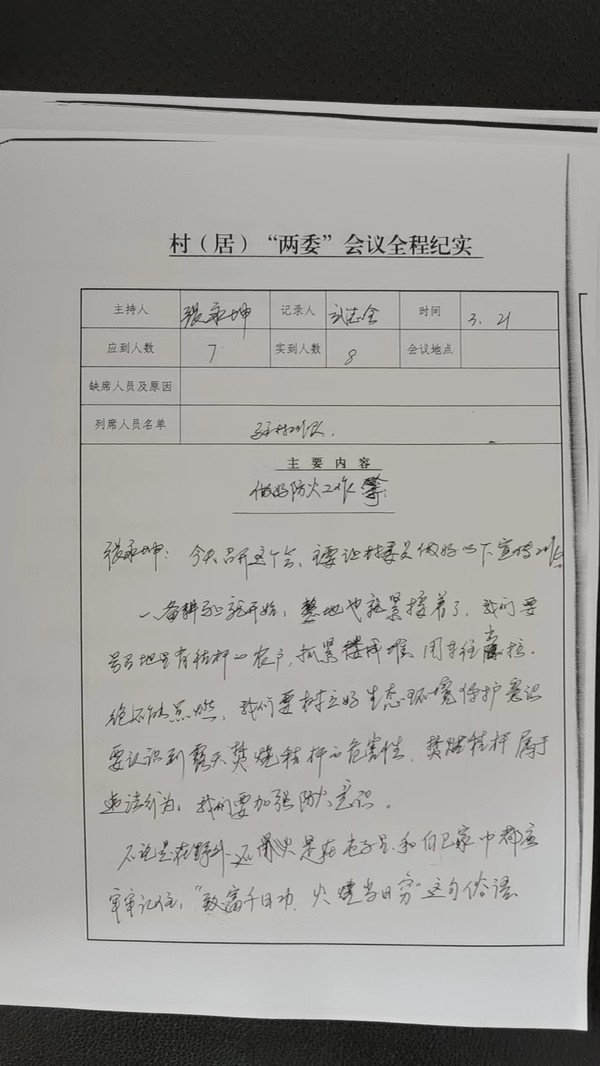 村（居）“两委”会议全程纪实
主持人 张永坤 记录人 刘志全 时间 3.21
应到人数 7 实到人数 8 会议地点
缺席人员及原因
列席人员名单 驻村队.
主要内容
做好防火工作
张永坤：今天召开这个会、主要让村委员做好以下宣传工作
一、备耕马上就开始，整地也就紧接着了，我们要
号召地里有秸杆的农户，抓紧搂用车往拉.
绝不能点燃，我们要树立好生态环境保护意识
要认识到露天焚烧秸秆的危害性，焚烧秸秆属于
违法行为，我们要加强防火意识。
不论是在野外还是在屯子里和自己家中都应
牢牢记住，“致富千日功，火烧当日穷”这句俗语